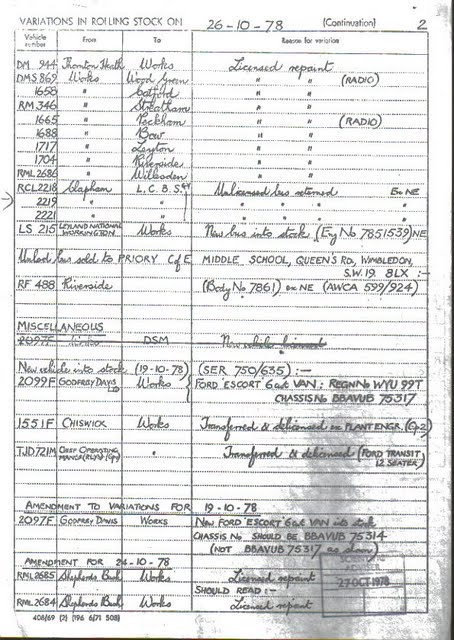 VARIATIONS IN ROLLING STOCK ON 26-10-78 (Continuation) 2
Vehicle number From To Reason for variation
DM 944 Thornton Heath Works Licensed repaint
DMS 869 Works Wood Green " " (RADIO)
1658 " Catford " "
RM 346 " Streatham " "
1665 " Peckham " " (RADIO)
1688 " Bow " "
1717 " Leyton " "
1704 " Riverside " "
RML 2686 " Willesden " "
RCL 2218 Clapham L.C.B.S. Unlicensed bus returned Ex NE
2219 " " " " " "
2221 " " " " " "
LS 215 LEYLAND NATIONAL WORKINGTON Works New bus into stock (Eng No 7851539) NE
bus sold to PRIORY C of E MIDDLE SCHOOL, QUEEN'S RD, WIMBLEDON,
S.W.19 8LX :-
RF 488 Riverside (Body No 7861) ex NE (AWCA 599/924)
MISCELLANEOUS
2097F Works DSM New vehicle licensed
New vehicle into stock (19-10-78) (SER 750/635) :-
2099F GODFREY DAVIS LTD Works FORD 'ESCORT' 6cwt VAN : REGN No WYU 99T
CHASSIS No BBAVUB 75317
1551F CHISWICK Works Transferred & delicensed ex PLANT ENGR. (Gp2)
TJD 721M CHIEF OPERATING MANGR (RLY) " Transferred & delicensed (FORD TRANSIT
12 SEATER)
AMENDMENT TO VARIATIONS FOR 19-10-78
2097F GODFREY DAVIS WORKS New FORD 'ESCORT' 6cwt VAN into stock
CHASSIS No SHOULD BE BBAVUB 75314
(NOT BBAVUB 75317 as shown)
AMENDMENT FOR 24-10-78
RML 2685 Shepherds Bush Works Licensed repaint
SHOULD READ :-
RML 2684 Shepherds Bush Works Licensed repaint
27 OCT 1978
408/69 (2) (196 6/71 508)